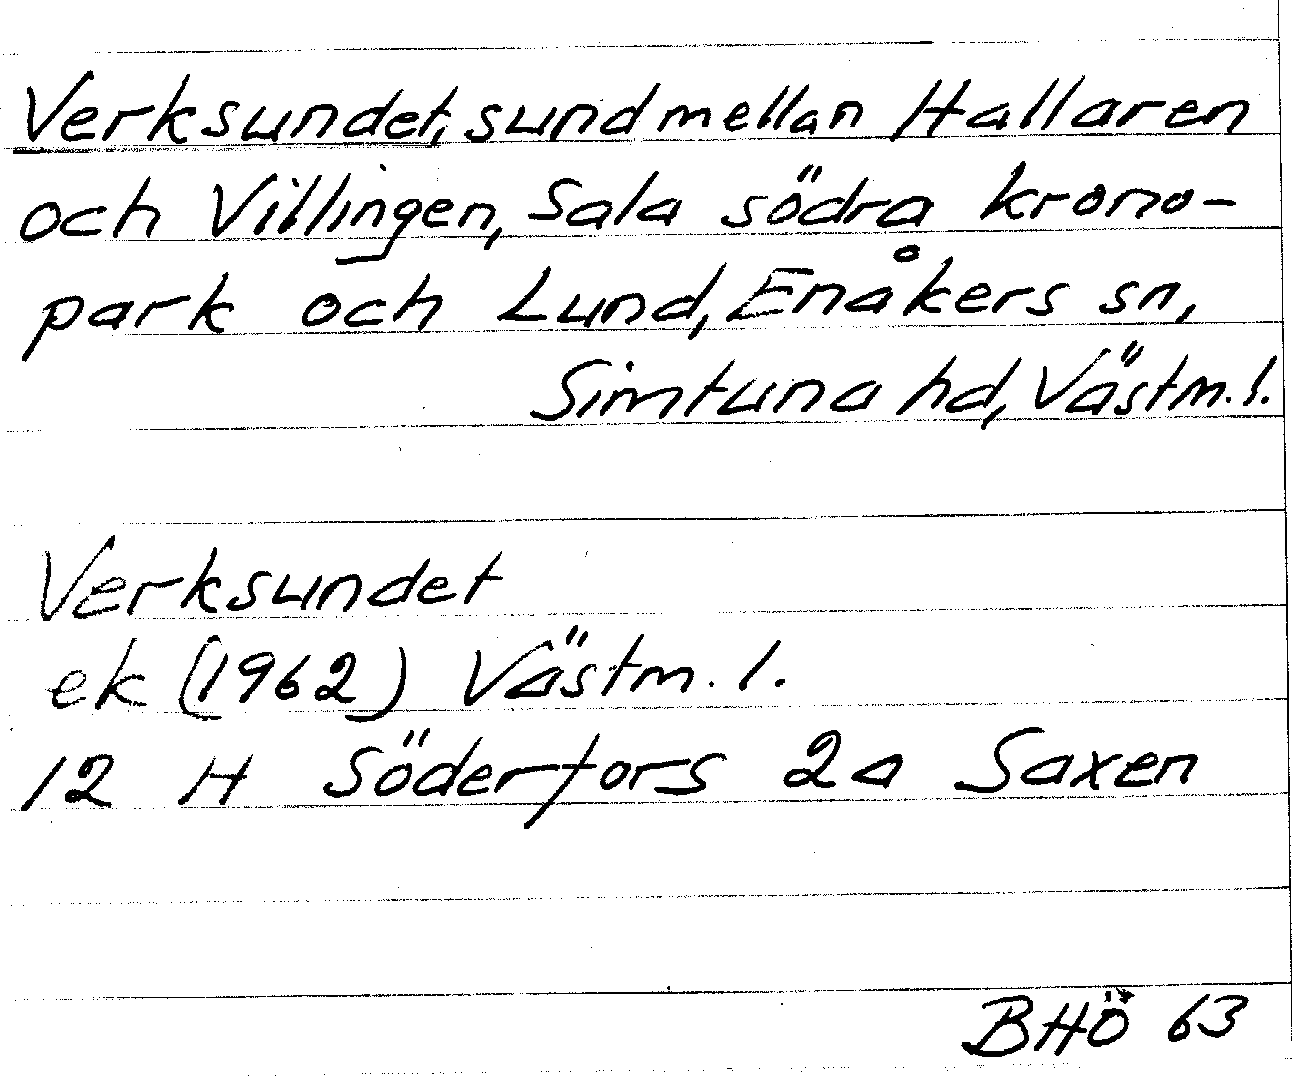 Verksundet, sund mellan Hallaren
och Villingen, Sala södra krono-
park och Lund, Enåkers sn,
Simtuna hd, Västm. l.
Verksundet
ek (1962) Västm. l.
12 H Söderfors 2a Saxen
BHÖ 63